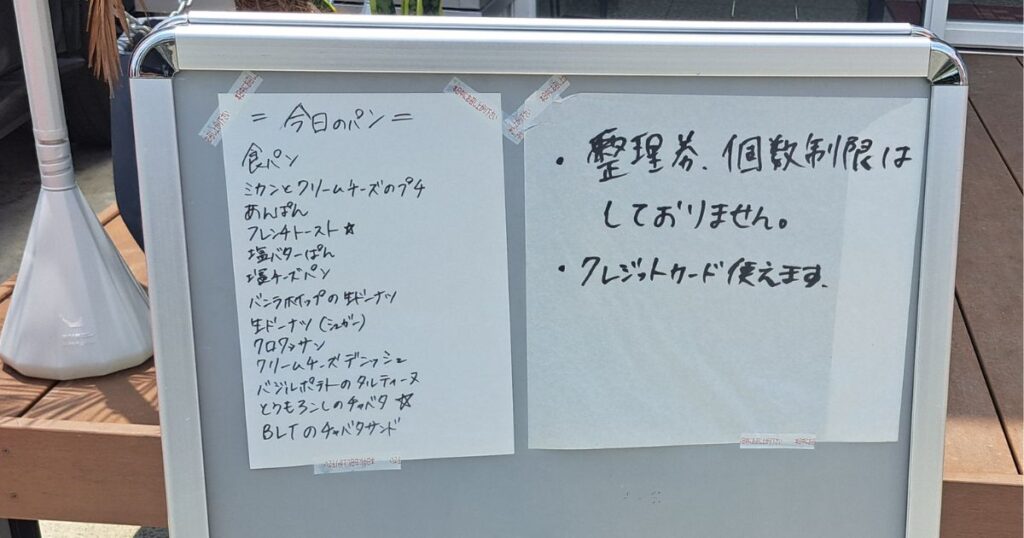 = 今日のパン =
食パン
ミカンとクリームチーズのプチ
あんぱん
フレンチトースト☆
塩バターぱん
塩チーズパン
バニラホイップの生ドーナツ
生ドーナツ (シュガー)
クロワッサン
クリームチーズデニッシュ
バジルポテトのタルティーヌ
とうもろこしのチャバタ ☆
BLTのチャバタサンド
・整理券、個数制限は
しておりません。
・クレジットカード使えます。